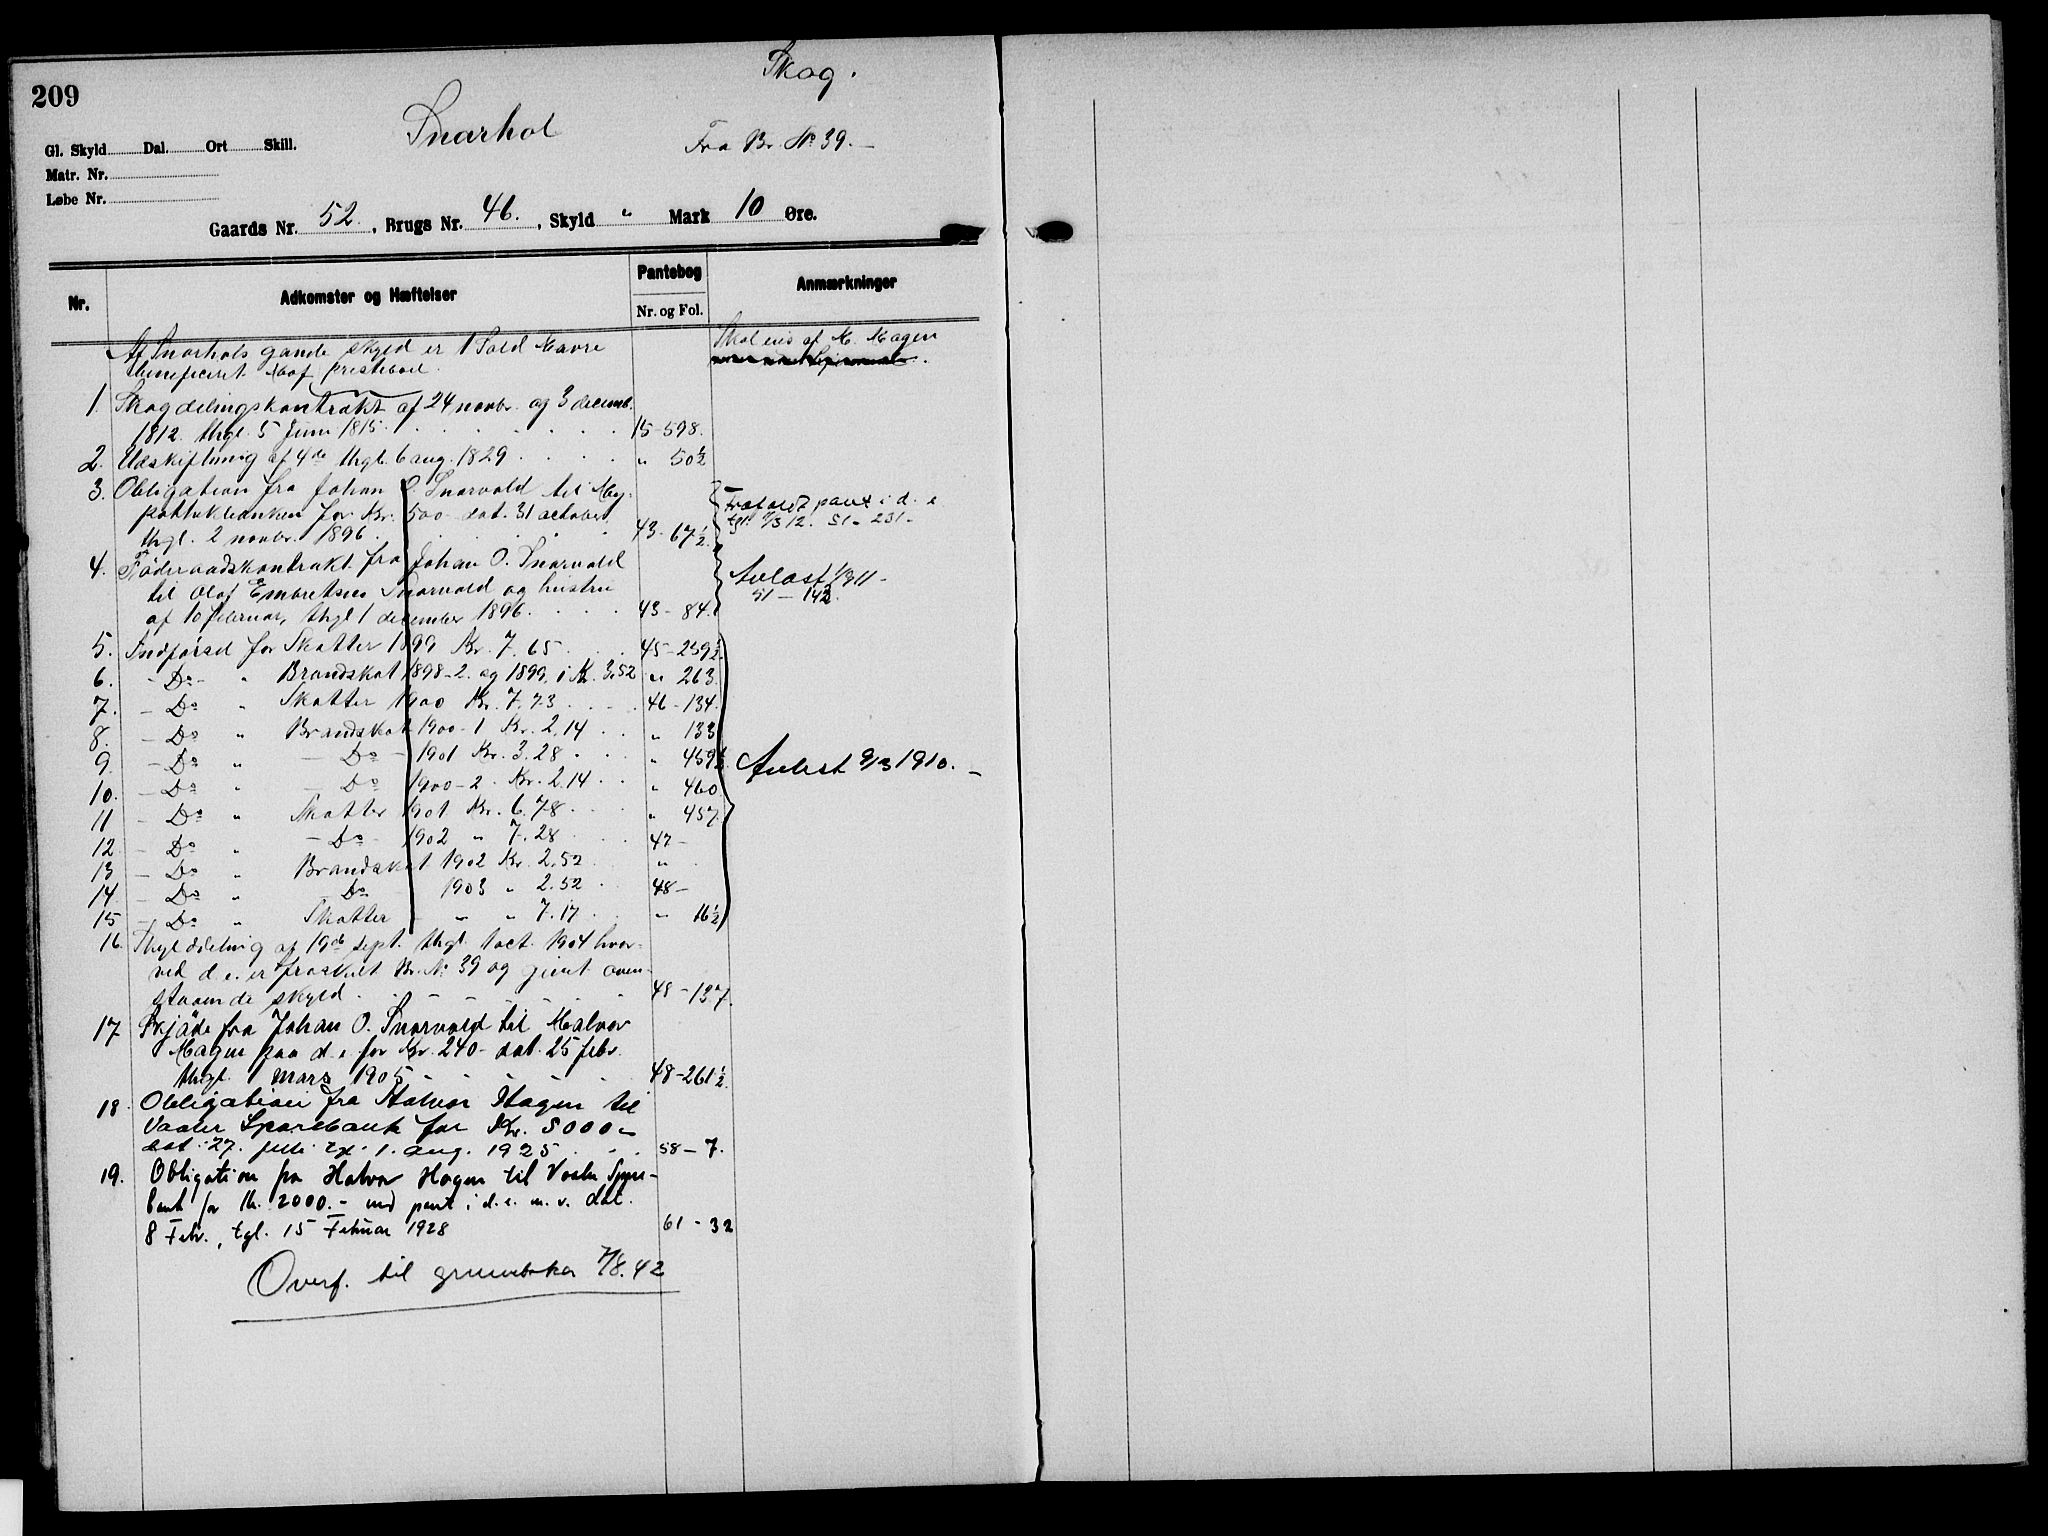 209
Skog.
Snarhol
Fra Br. No 39.
Gl. Skyld Dal. Ort Skill.
Matr. Nr.
Løbe Nr.
Gaards Nr. 52. , Brugs Nr. 46. , Skyld " Mark 10 Øre.
Nr. Adkomster og Hæftelser Pantebog Nr. og Fol. Anmærkninger
Af Snarhols gamle skyld er 1 Sold Havre Skal eies af H. Hagen
beneficeret Hof prestebol.
1. Skogdelingskontrakt af 24 novbr. og 3 decemb.
1812. thgl. 5 Juni 1815. 15-598.
2. Udskiftning af 4de thgl. 6 aug. 1829 " 50½
3. Obligation fra Johan O. Snarvold til Hy-
pothekbanken for Kr. 500 dat. 31 october,
thgl. 2 novbr. 1896. 43-67½
Frafaldt pant i d. e
tgl. 1/3 12. 51-231-
4. Föderaadskontrakt fra Johan O. Snarvold
til Olaf Embretsen Snarvold og hustru
af 10 februar, thgl 1 december 1896. 43-84.
Avlæst 1/3 11-
51-142.
5. Indförsel for Skatter 1899 Kr. 7.65 45-259½
6. -Do- " Brandskat 1898-2. og 1899. 1 Kr. 3,52 " 263.
7. -Do " Skatter 1900 Kr. 7.73 46-134.
8. -Do " Brandskat 1900-1 Kr. 2.14 " 133
9. -Do " -Do- 1901 Kr. 3.28 " 459½ Avlæst 9/3 1910.-
10. -Do " -Do 1900-2 Kr. 2.14 " 460
11 -Do " Skatter 1901 Kr. 6.78 " 457.
12 -Do " -Do- 1902 " 7.28 47-
13 -Do " Brandskat 1902 Kr. 2.52 "
14 -Do " Do 1903 " 2.52 48-
15 -Do " Skatter " " 7.17 " 16½
16. Skylddeling af 19de sept. thgl. 1 oct. 1904 hvor-
ved d. e. er fraskilt Br. No 39 og givet oven-
staaende skyld. 48-137.
17 Skjöde fra Johan O. Snarvold til Halvor
Hagen paa d. e. for Kr. 240- dat. 25 febr.
thgl. 1 mars 1905 48-261½
18. Obligation fra Halvor Hagen til
Vaaler Sparebank for Kr. 5000-
dat. 27. juli tgl. 1. aug. 1925 58-7.
19. Obligation fra Halvor Hagen til Vaaler Spare-
bank for kr. 2000.- med pant i d. e. m. v. dat.
8 Febr., tgl. 15 Februar 1928 61-32
Overf. til grunnboka 7/8.42